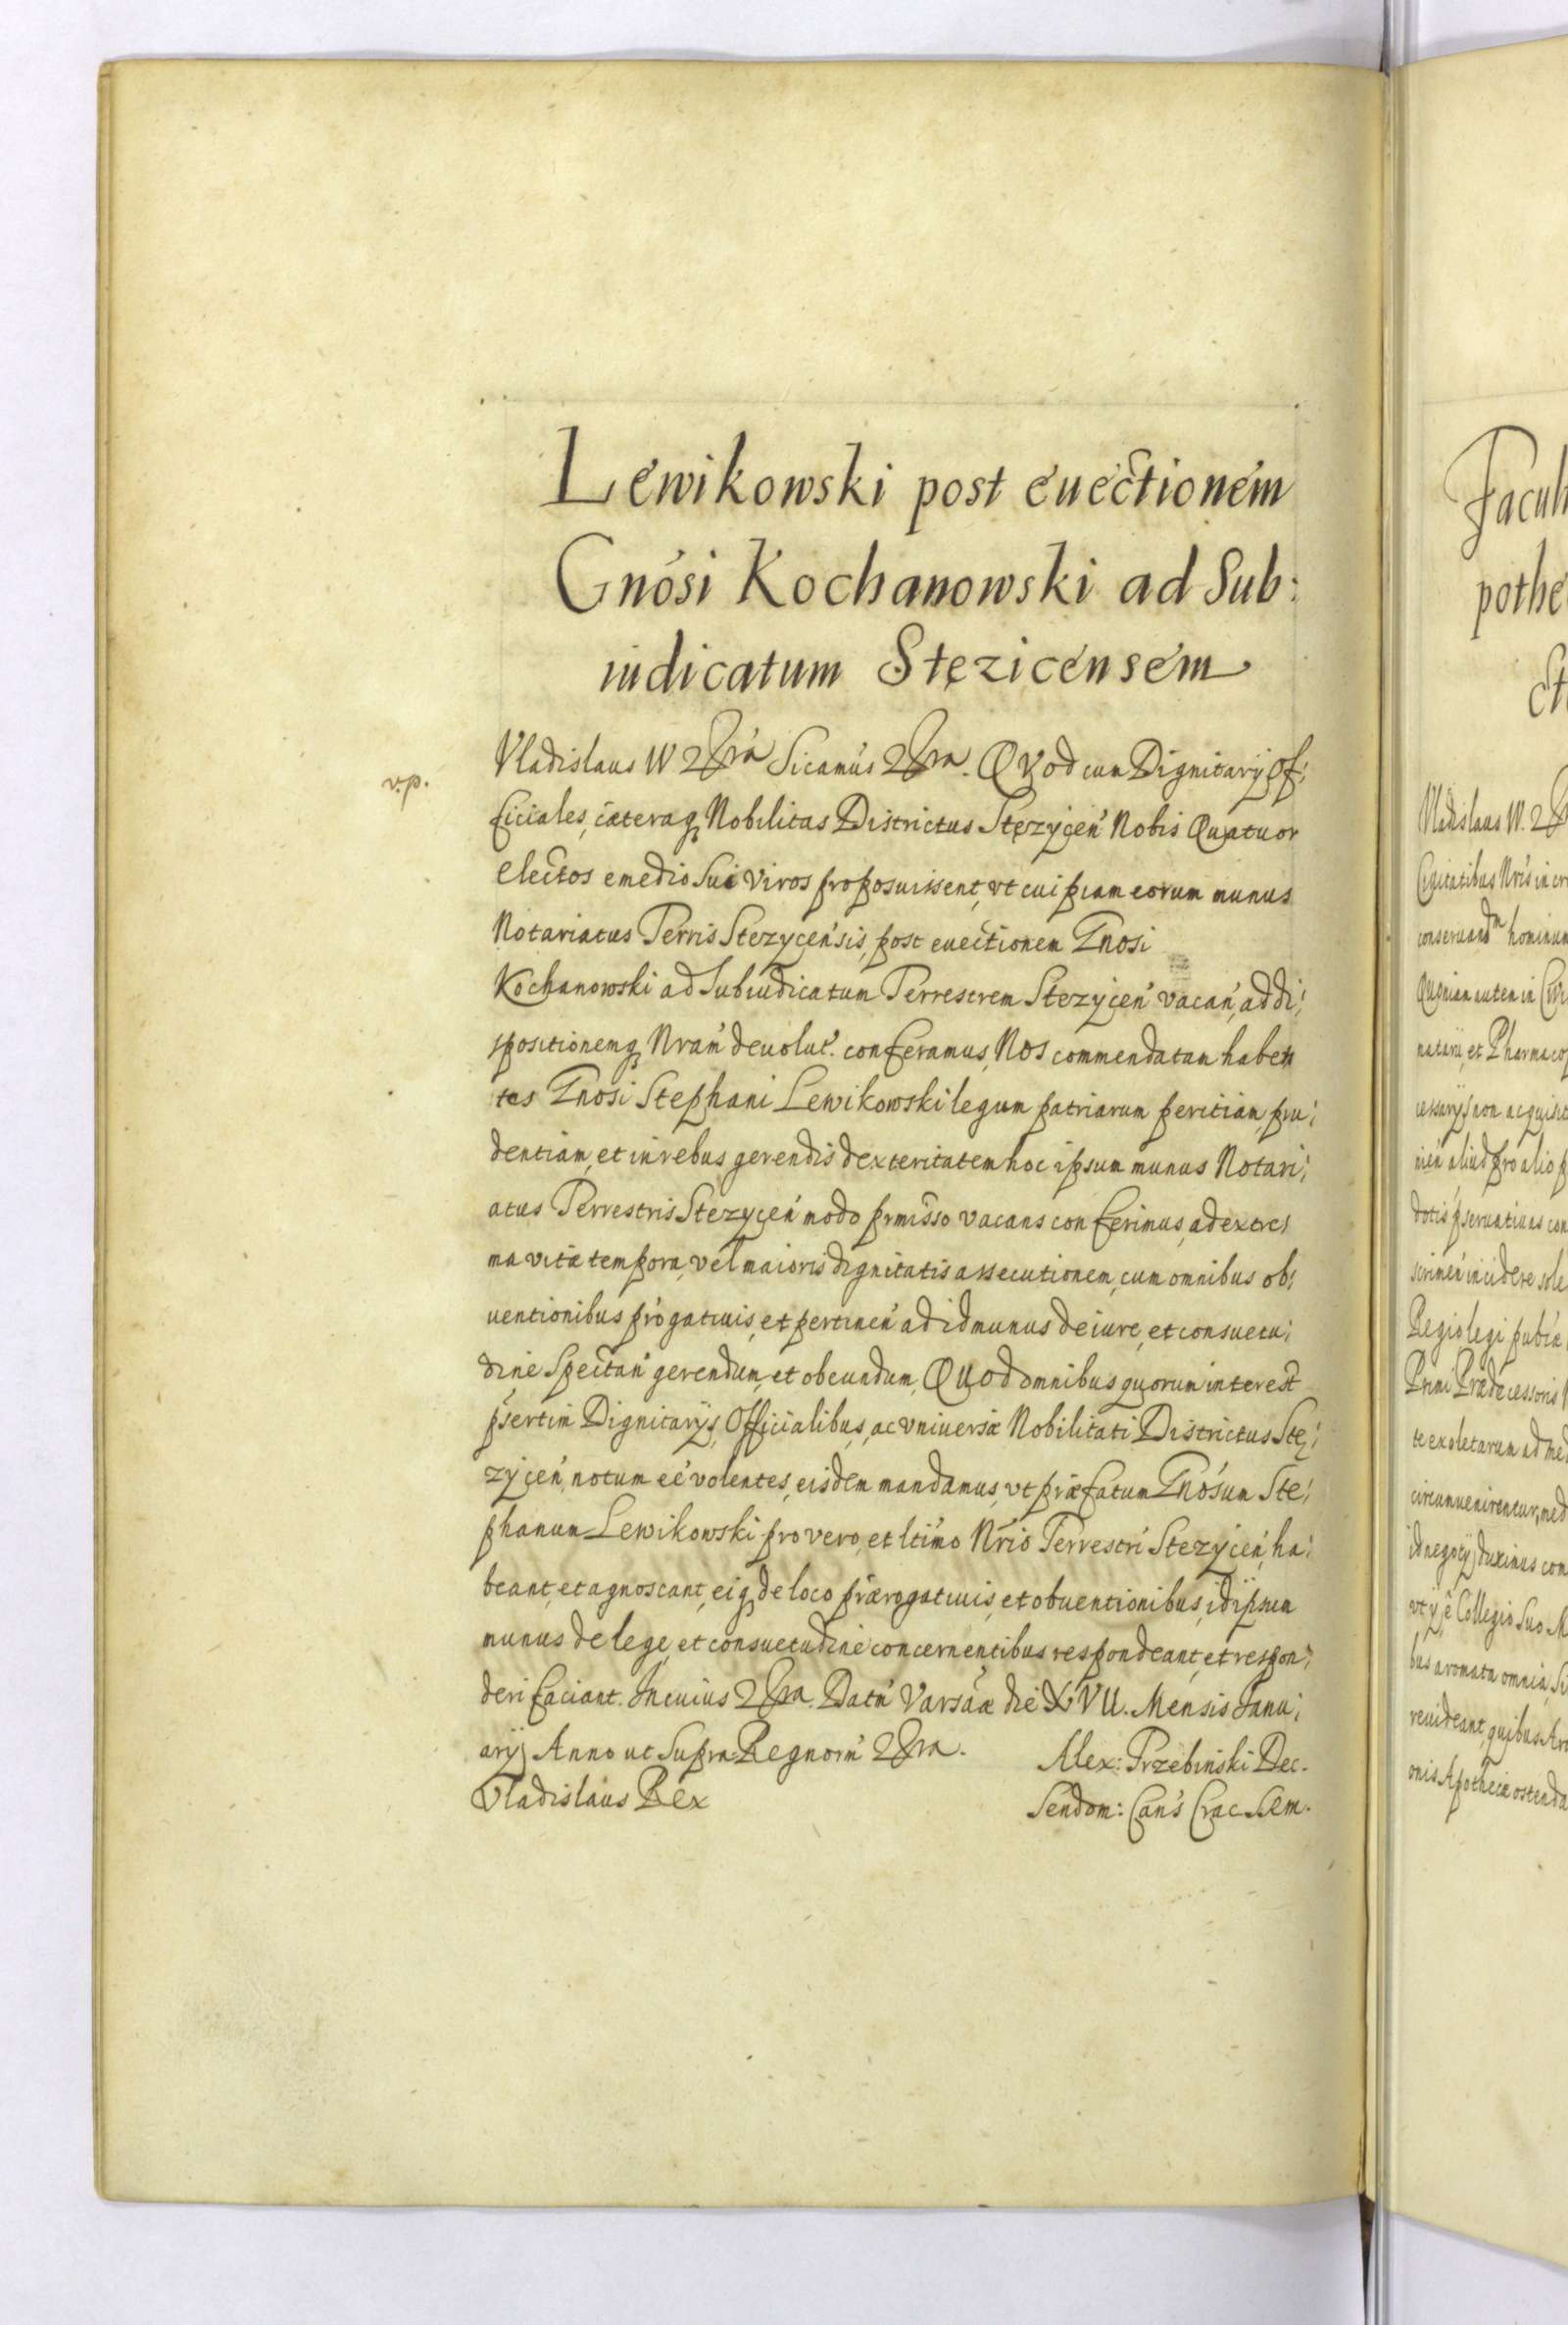 Lewikowski post euectionem
Gnosi Kochanowski ad Sub:
iudicatum Stęzicensem
v.p.
Vladislaus IV 2Xra Sicamus 2Xra. QVod cum Dignitarij Of:
ficiales, caeteraq Nobilitas Districtus Stęzycen Nobis Quatuor
electos emedio Sui viros proposuissent, vt cuipiam eorum munus
Notariatus Terris Stezycensis, post euectionem Gnosi
Kochanowski ad Subiudicatum Terrestrem Stezycen vacan, ad di:
spositionemq Nram deuolut. conferamus, Nos commendatam haben
tes Gnosi Stephani Lewikowski legum patriarum peritiam, pru:
dentiam, et in rebus gerendis dexteritatem hoc ipsum munus Notari:
atus Terrestris Stezycen modo pmisso vacans conferimus, ad extre:
ma vitae tempora, vel maioris dignitatis assecutionem, cum omnibus ob:
uentionibus progatiuis, et pertinen ad id munus de iure, et consuetu:
dine Spectan gerendum, et obeundum, QUod omnibus quorum interest
psertim Dignitarijs, Officialibus, ac vniuersae Nobilitati Districtus Stę:
zycen, notum eé volentes, eisdem mandamus, vt praefatum Gnosum Ste:
phanum Lewikowski pro vero, et ltimo Nrio Terrestri Stezycen, ha:
beant, et agnoscant, eiq de loco praerogatiuis, et obuentionibus, id ipsum
munus de lege, et consuetudine concernentibus respondeant, et respon:
deri faciant. In cuius 2Xra. Datu Varsaae die XVII. Mensis Janu:
arij Anno ut Supra Regnorn 2Xra.
Vladislaus Rex
Alex: Trzebinski Dec.
Sendom: Can's Crac Sem.
Facul
pothe
Vladislaus IV. 2X
conseruand hominum
Quoniam autem in
natarij, et Pharmacop
nien aliud pro alio p
dotis pseruatiuas con
Regio legi
Prmi Praedecessoris
te exoletarum ad med
circumuenirentur, med
id negotij duximus com
Collegio Suo M
bus aromata omnia, Si
reuideant, quibus Aro
onis Apothecae ostenda